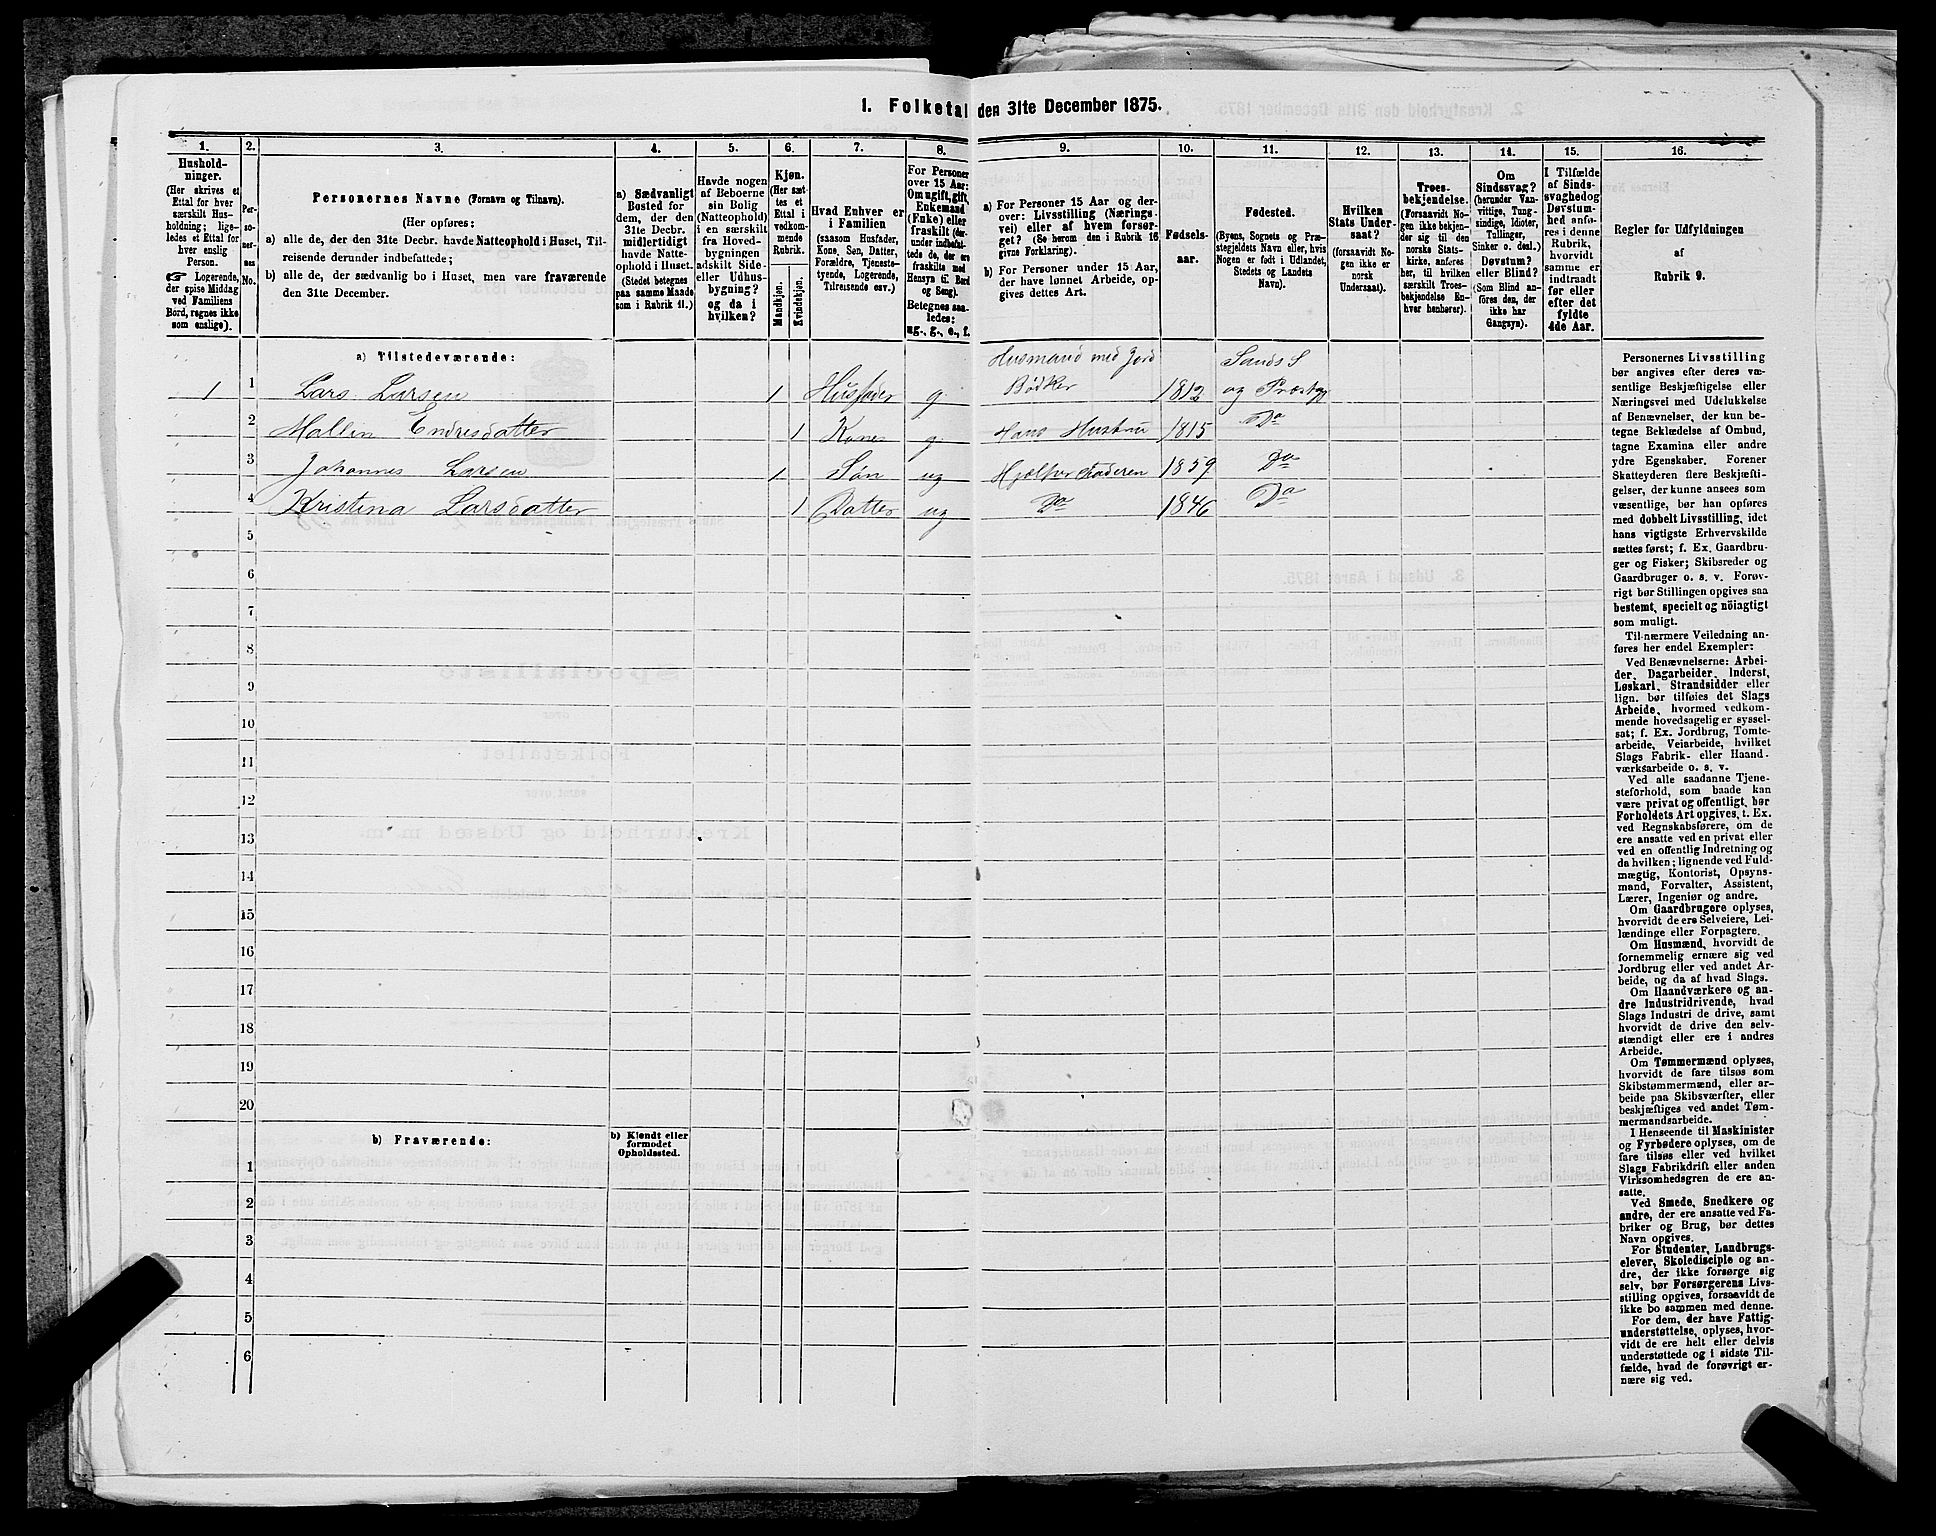 1. Folketal den 31te December 1875.
1. 2. 3. 4. 5. 6. 7. 8. 9. 10. 11. 12. 13. 14. 15. 16.
Hushold-
ninger.
(Her skrives et
Ettal for hver
særskilt Hus-
holdning; lige-
ledes et Ettal for
hver enslig
Person.
☞ Logerende,
der spise Middag
ved Familiens
Bord, regnes ikke
som enslige).
Per-
so-
ner-
nes
No.
Personernes Navne (Fornavn og Tilnavn).
(Her opføres:
a) alle de, der den 31te Decbr. havde Natteophold i Huset, Til-
reisende derunder indbefattede;
b) alle de, der sædvanlig bo i Huset, men vare fraværende
den 31te December.
a) Sædvanligt
Bosted for
dem, der den
31te Decbr.
midlertidigt
havde Natte-
ophold i Huset.
(Stedet betegnes
paa samme Maade
som i Rubrik 11.)
Havde nogen
af Beboerne
sin Bolig
(Natteophold)
i en særskilt
fra Hoved-
bygningen
adskilt Side-
eller Udhus-
bygning?
og da i
hvilken?
Kjøn.
(Her sæt-
tes et
Ettal i
vedkom-
mende
Rubrik.
Mandkjøn.
Kvindekjøn.
Hvad Enhver er
i Familien
(saasom Husfader,
Kone, Søn, Datter,
Forældre, Tjeneste-
tyende, Logerende,
Tilreisende osv.)
For Personer
over 15 Aar:
Om ugift, gift,
Enkemand
(Enke) eller
fraskilt (der-
under indbefat-
tede de, der ere
fraskilte med
Hensyn til Bord
og Seng).
Betegnes saa-
ledes:
ug., g., e., f.
a) For Personer 15 Aar og der-
over: Livsstilling (Nærings-
vei) eller af hvem forsør-
get? (Se herom den i Rubrik 16
givne Forklaring).
b) For Personer under 15 Aar,
der have lønnet Arbeide, op-
gives dettes Art.
Fødsels-
aar.
Fødested.
(Byens, Sognets og Præ-
stegjeldets Navn eller, hvis
Nogen er født i Udlandet,
Stedets og Landets
Navn).
Hvilken
Stats Under-
saat?
(forsaavidt No-
gen ikke er
norsk
Undersaat).
Troes-
bekjendelse.
(Forsaavidt No-
gen ikke bekjen-
der sig til den
norske Stats-
kirke, anføres
her, til hvilken
særskilt Troes-
bekjendelse En-
hver henhører).
Om
Sindssvag?
(herunder Van-
vittige, Tung-
sindige, Idioter,
Tullinger,
Sinker o. desl.)
Døvstum?
eller Blind?
(Som Blind an-
føres den, der
ikke har
Gangsyn).
I Tilfælde
af Sinds-
svaghed og
Døvstum-
hed anfø-
res i denne
Rubrik,
hvorvidt
samme er
indtraadt
før eller
efter det
fyldte
4de Aar.
Regler for Udfyldningen
af
Rubrik 9.
a) Tilstedeværende:
Husmand med Jord Sands S
1 1 Lars Larsen 1 Husfader g. Bødker 1812 og Præstg
2 Mallin Endresdatter 1 Kone g. Hans Hustru 1815 Do
3 Johannes Larsen 1 Søn ug Hjælper Faderen 1859 Do
4 Kristina Larsdatter 1 Datter ug Do 1846 Do
5
6
7
8
9
10
11
12
13
14
15
16
17
18
19
20
b) Fraværende:
b) Kjendt eller
formodet
Opholdssted.
1
2
3
4
5
6
Personernes Livsstilling
bør angives efter deres væ-
sentlige Beskjæftigelse eller
Næringsvei med Udelukkelse
af Benævnelser, der kun be-
tegne Beklædelse af Ombud,
tagne Examina eller andre
ydre Egenskaber. Forener
Skatteyderen flere Beskjæfti-
gelser, der kunne ansees som
væsentlige, bør han opføres
med dobbelt Livsstilling, idet
hans vigtigste Erhvervskilde
sættes først; f. Ex. Gaardbru-
ger og Fisker; Skibsreder og
Gaardbruger o. s. v. Forøv-
rigt bør Stillingen opgives saa
bestemt, specielt og nøiagtigt
som muligt.
Til nærmere Veiledning an-
føres her endel Exempler:
Ved Benævnelserne: Arbei-
der, Dagarbeider, Inderst,
Løskarl, Strandsidder eller
lign. bør tilføies det Slags
Arbeide, hvormed vedkom-
mende hovedsagelig er syssel-
sat; f. Ex. Jordbrug, Tomte-
arbeide, Veiarbeide, hvilket
Slags Fabrik- eller Haand-
værksarbeide o. s. v.
Ved alle saadanne Tjene-
steforhold, som baade kan
være privat og offentligt, bør
Forholdets Art opgives, t. Ex.
ved Regnskabsførere, om de
ere ansatte ved en privat eller
ved en offentlig Indretning og
da hvilken; lignende ved Fuld-
mægtig, Kontorist, Opsyns-
mand, Forvalter, Assistent,
Lærer, Ingeniør og andre.
Om Gaardbrugere oplyses,
hvorvidt de ere Selveiere, Lei-
lændinge eller Forpagtere.
Om Husmænd, hvorvidt de
fornemmelig ernære sig ved
Jordbrug eller ved andet Ar-
beide, og da af hvad Slags.
Om Haandværkere og an-
dre Industridrivende, hvad
Slags Industri de drive, samt
hvorvidt de drive den selv-
stændigt eller ere i andres
Arbeide.
Om Tømmermænd oplyses,
hvorvidt de fare tilsøs som
Skibstømmermænd, eller ar-
beide paa Skibsværfter, eller
beskjæftiges ved andet Tøm-
mermandsarbeide.
I Henseende til Maskinister
og Fyrbødere oplyses, om de
fare tilsøs eller ved hvilket
Slags Fabrikdrift eller anden
Virksomhedsgren de ere an-
satte.
Ved Smede, Snedkere og
andre, der ere ansatte ved Fa-
briker og Brug, bør dettes
Navn opgives.
For Studenter, Landbrugs-
elever, Skoledisciple og an-
dre, der ikke forsørge sig
selv, bør Forsørgerens Livs-
stilling opgives, forsaavidt de
ikke bo sammen med denne.
For dem, der have Fattig-
understøttelse, oplyses, hvor-
vidt de ere helt eller delvis
understøttede og i sidste Til-
fælde, hvad de forøvrigt er-
nære sig ved.